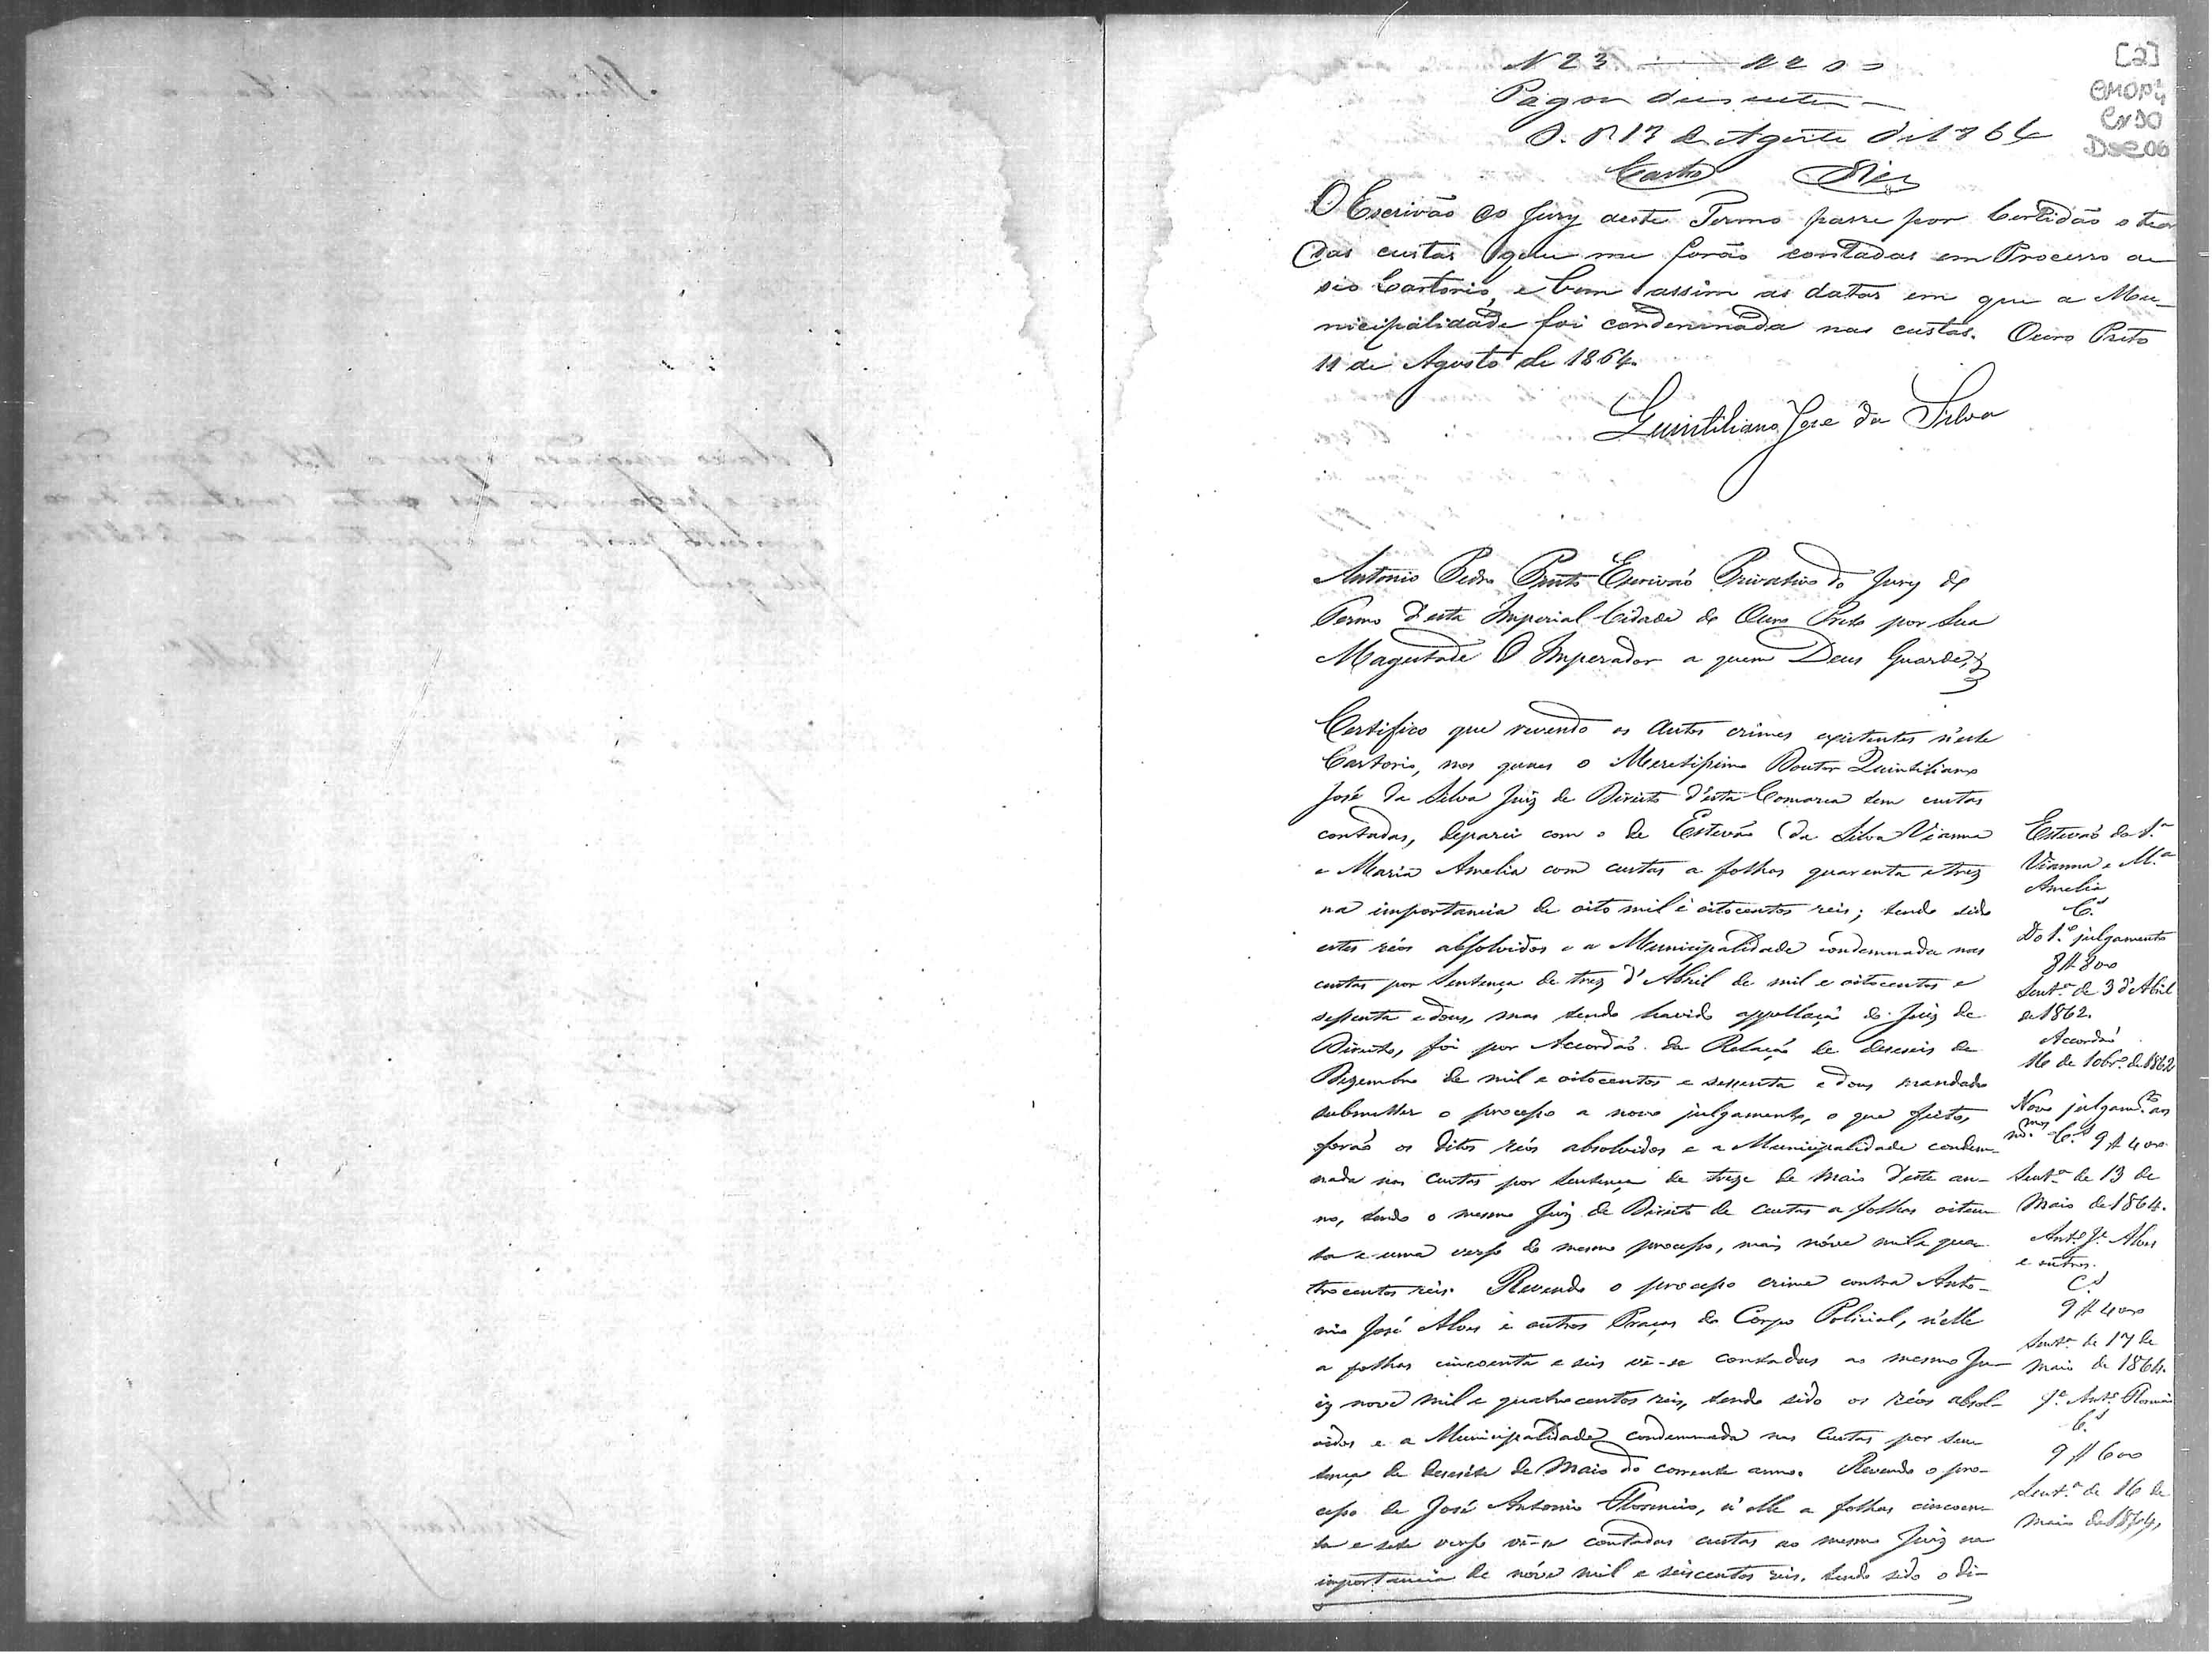 [2]
CMOP 4
Cx 90
Doc 06
N 23
Pagou
O. P. 17 de Agosto de 1864
Castro
O Escrivão do Jury deste Termo passe por Certidão o teor
das custas que me forão contadas em Processo de
seo Cartorio, e bem assim as datas em que a Mu-
nicipalidade foi condemnada nas custas. Ouro Preto
11 de Agosto de 1864.
Quintiliano José da Silva
Antonio Pedro Pinto Escrivaõ Privativo do Jury do
Termo d'esta Imperial Cidade do Ouro Preto por Sua
Magestade O Imperador a quem Deus Guarde,
Certifico que revendo os autos crimes existentes n'este
Cartorio, nos quaes o Meretissimo Doutor Quintiliano
José da Silva Juiz de Direito d'esta Comarca tem custas
contadas, deparei com o de Estevão da Silva Vianna
e Maria Amelia com custas a folhas quarenta e trez
na importancia de oito mil e oitocentos reis; tendo sido
estes réos absolvidos e a Municipalidade condemnada nas
custas por Sentença de trez d'Abril de mil e oitocentos e
sessenta e dous, mas tendo havido appellaçaõ do Juiz de
Direito, foi por Accordaõ da Relaçaõ de deseseis de
Dezembro de mil e oitocentos e sessenta e dous mandado
submetter o processo a novo julgamento, o que feito,
foraõ os ditos réos absolvidos e a Municipalidade condem-
nada nas custas por sentença de treze de Maio d'este an-
no, tendo o mesmo Juiz de Direito de custas a folhas oiten-
ta e uma verso do mesmo processo, mais nóve mil e qua-
trocentos reis. Revendo o processo crime contra Anto-
nio José Alves e outros Praças do Corpo Policial, n'elle
a folhas cincoenta e seis vê-se contadas ao mesmo Ju-
iz nove mil e quatrocentos reis, tendo sido os réos absol-
vidos e a Municipalidade condemnada nas custas por sen-
tença de desesete de Maio do corrente anno. Revendo o pro-
cesso de José Antonio Florencio, n'elle a folhas cincoen-
ta e sete verso vê-se contadas custas ao mesmo Juiz na
importancia de nóve mil e seiscentos reis, tendo sido o di-
Estevaõ da S.ª
Vianna e M.ª
Amelia
C.s
Do 1.º julgamento
8$800
Sent.ª de 3 d'Abril
de 1862.
Accordaõ
16 de 10br.º de 1862
Novo julgam.to aos
m.mos C.s 9$400
Sent.ª de 13 de
Maio de 1864.
Ant.º J.e Alves
e outros.
C.s
9$400
Sent.ª de 17 de
Maio de 1864.
J.e Ant.º Florencio
C.s
9$600
Sent.ª de 16 de
Maio de 1864,